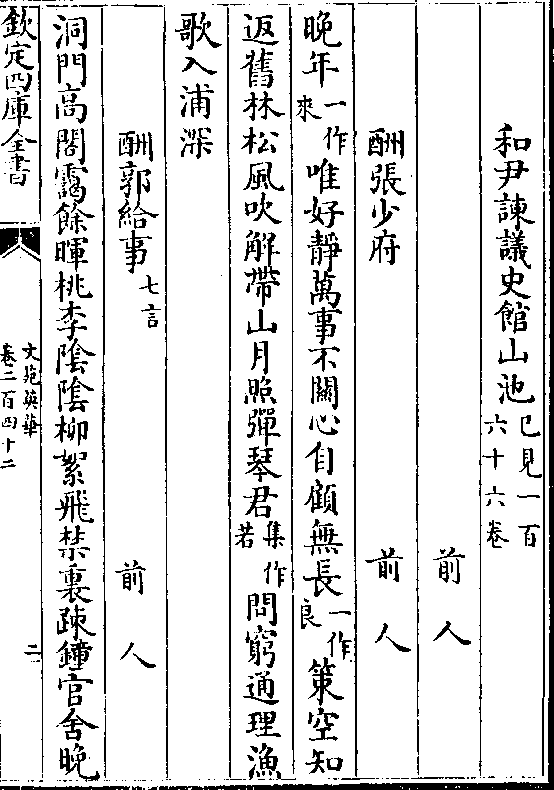 和尹諫議史館山池已見一百六十六卷
前人
酬張少府
前人
晚年一作來唯好靜萬事不關心自顧無長一作良策空知
返舊林松風吹解帶山月照彈琴君集作若問窮通理漁
歌入浦深
酬郭給事七言
前人
洞門高閣靄餘暉桃李陰陰柳絮飛禁裏疎鐘官舍晚
欽定四庫全書
文苑英華
卷三百四十二
二